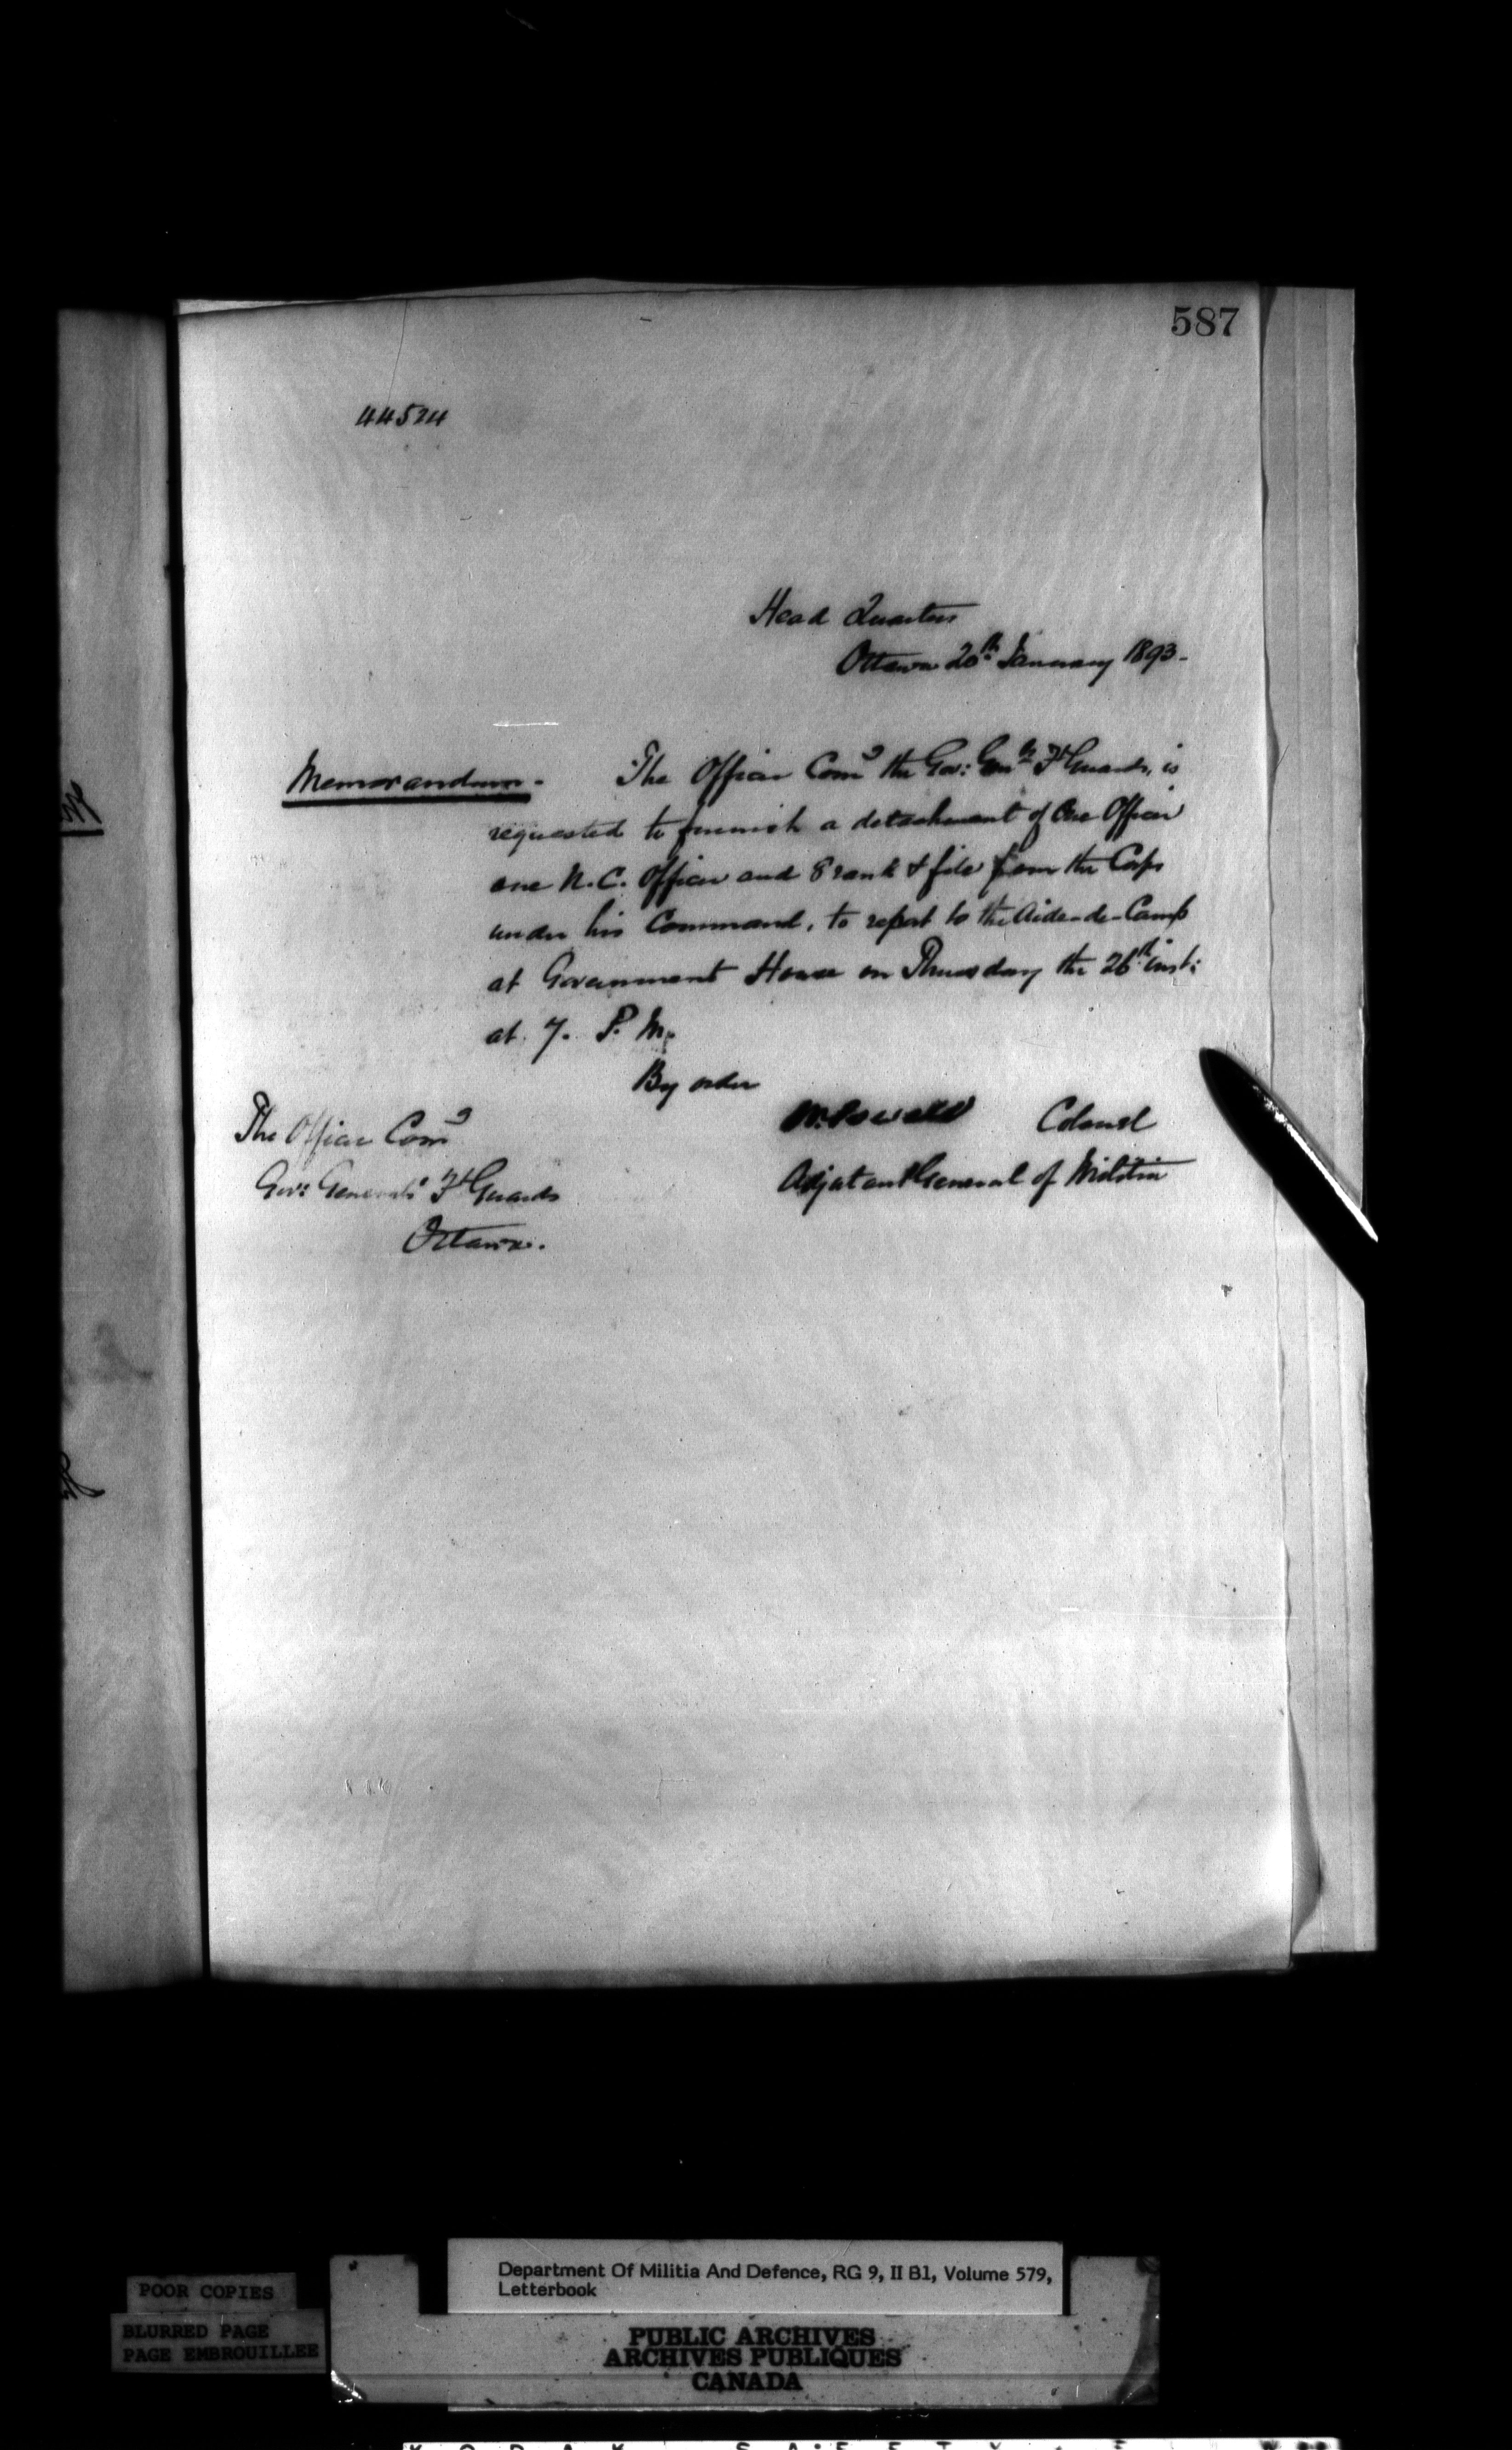 587
44524
Head Quarters
Ottawa 20th January 1893-
Memorandum- The Officer Comd the Gov: Genls Ft Guards, is
requested to furnish a detachment of One Officer
one N.C. Officer and 8 rank & file from the Corps
under his Command, to report to the Aide-de-Camp
at Government House on Thursday the 26th inst:
at 7. P. M.
By order
The Officer Comd
W. Powell Colonel
Gov: Generals' Ft Guards
Adjutant General of Militia
Ottawa.
Department Of Militia And Defence, RG 9, II B1, Volume 579,
Letterbook
POOR COPIES
BLURRED PAGE
PAGE EMBROUILLEE
PUBLIC ARCHIVES
ARCHIVES PUBLIQUES
CANADA